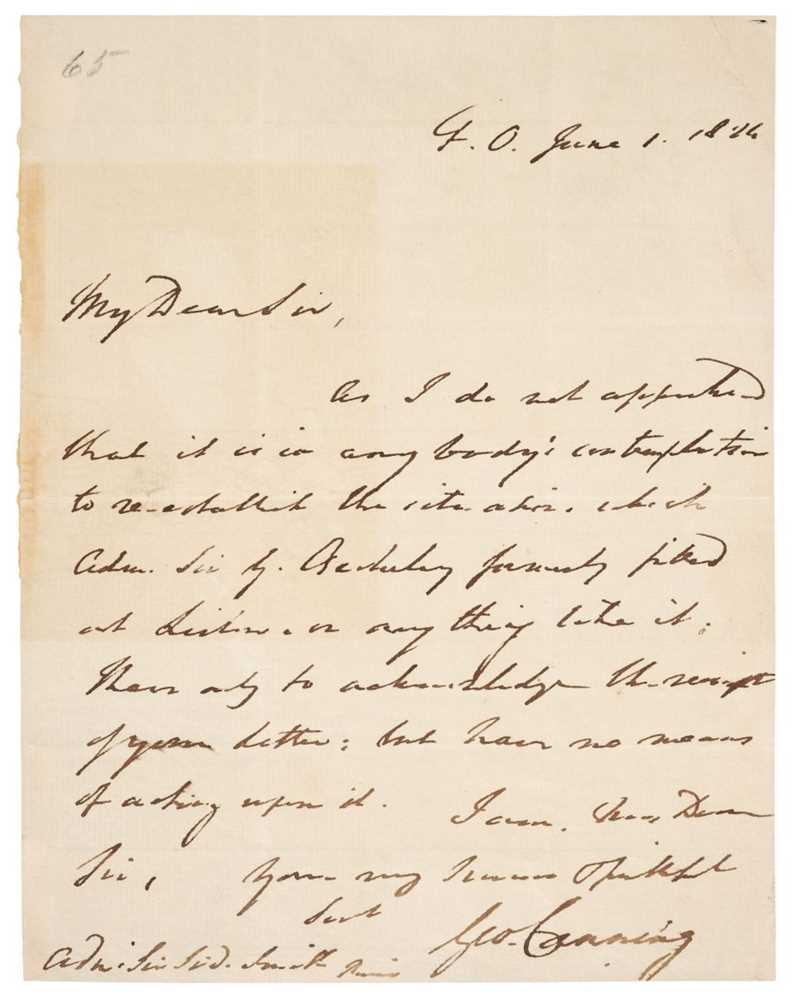 65
F. O. June 1. 1826
My Dear Sir,
As I do not apprehend
that it is in any body's contemplation
to re-establish the situation, which
Adm. Sir G. Berkeley formerly filled
at Lisbon, or any thing like it;
I have only to acknowledge the receipt
of your Letter; but have no means
of acting upon it. I am, My Dear
Sir, Your very humble & faithful
Servt
Geo. Canning
Adm. Sir Sid. Smith